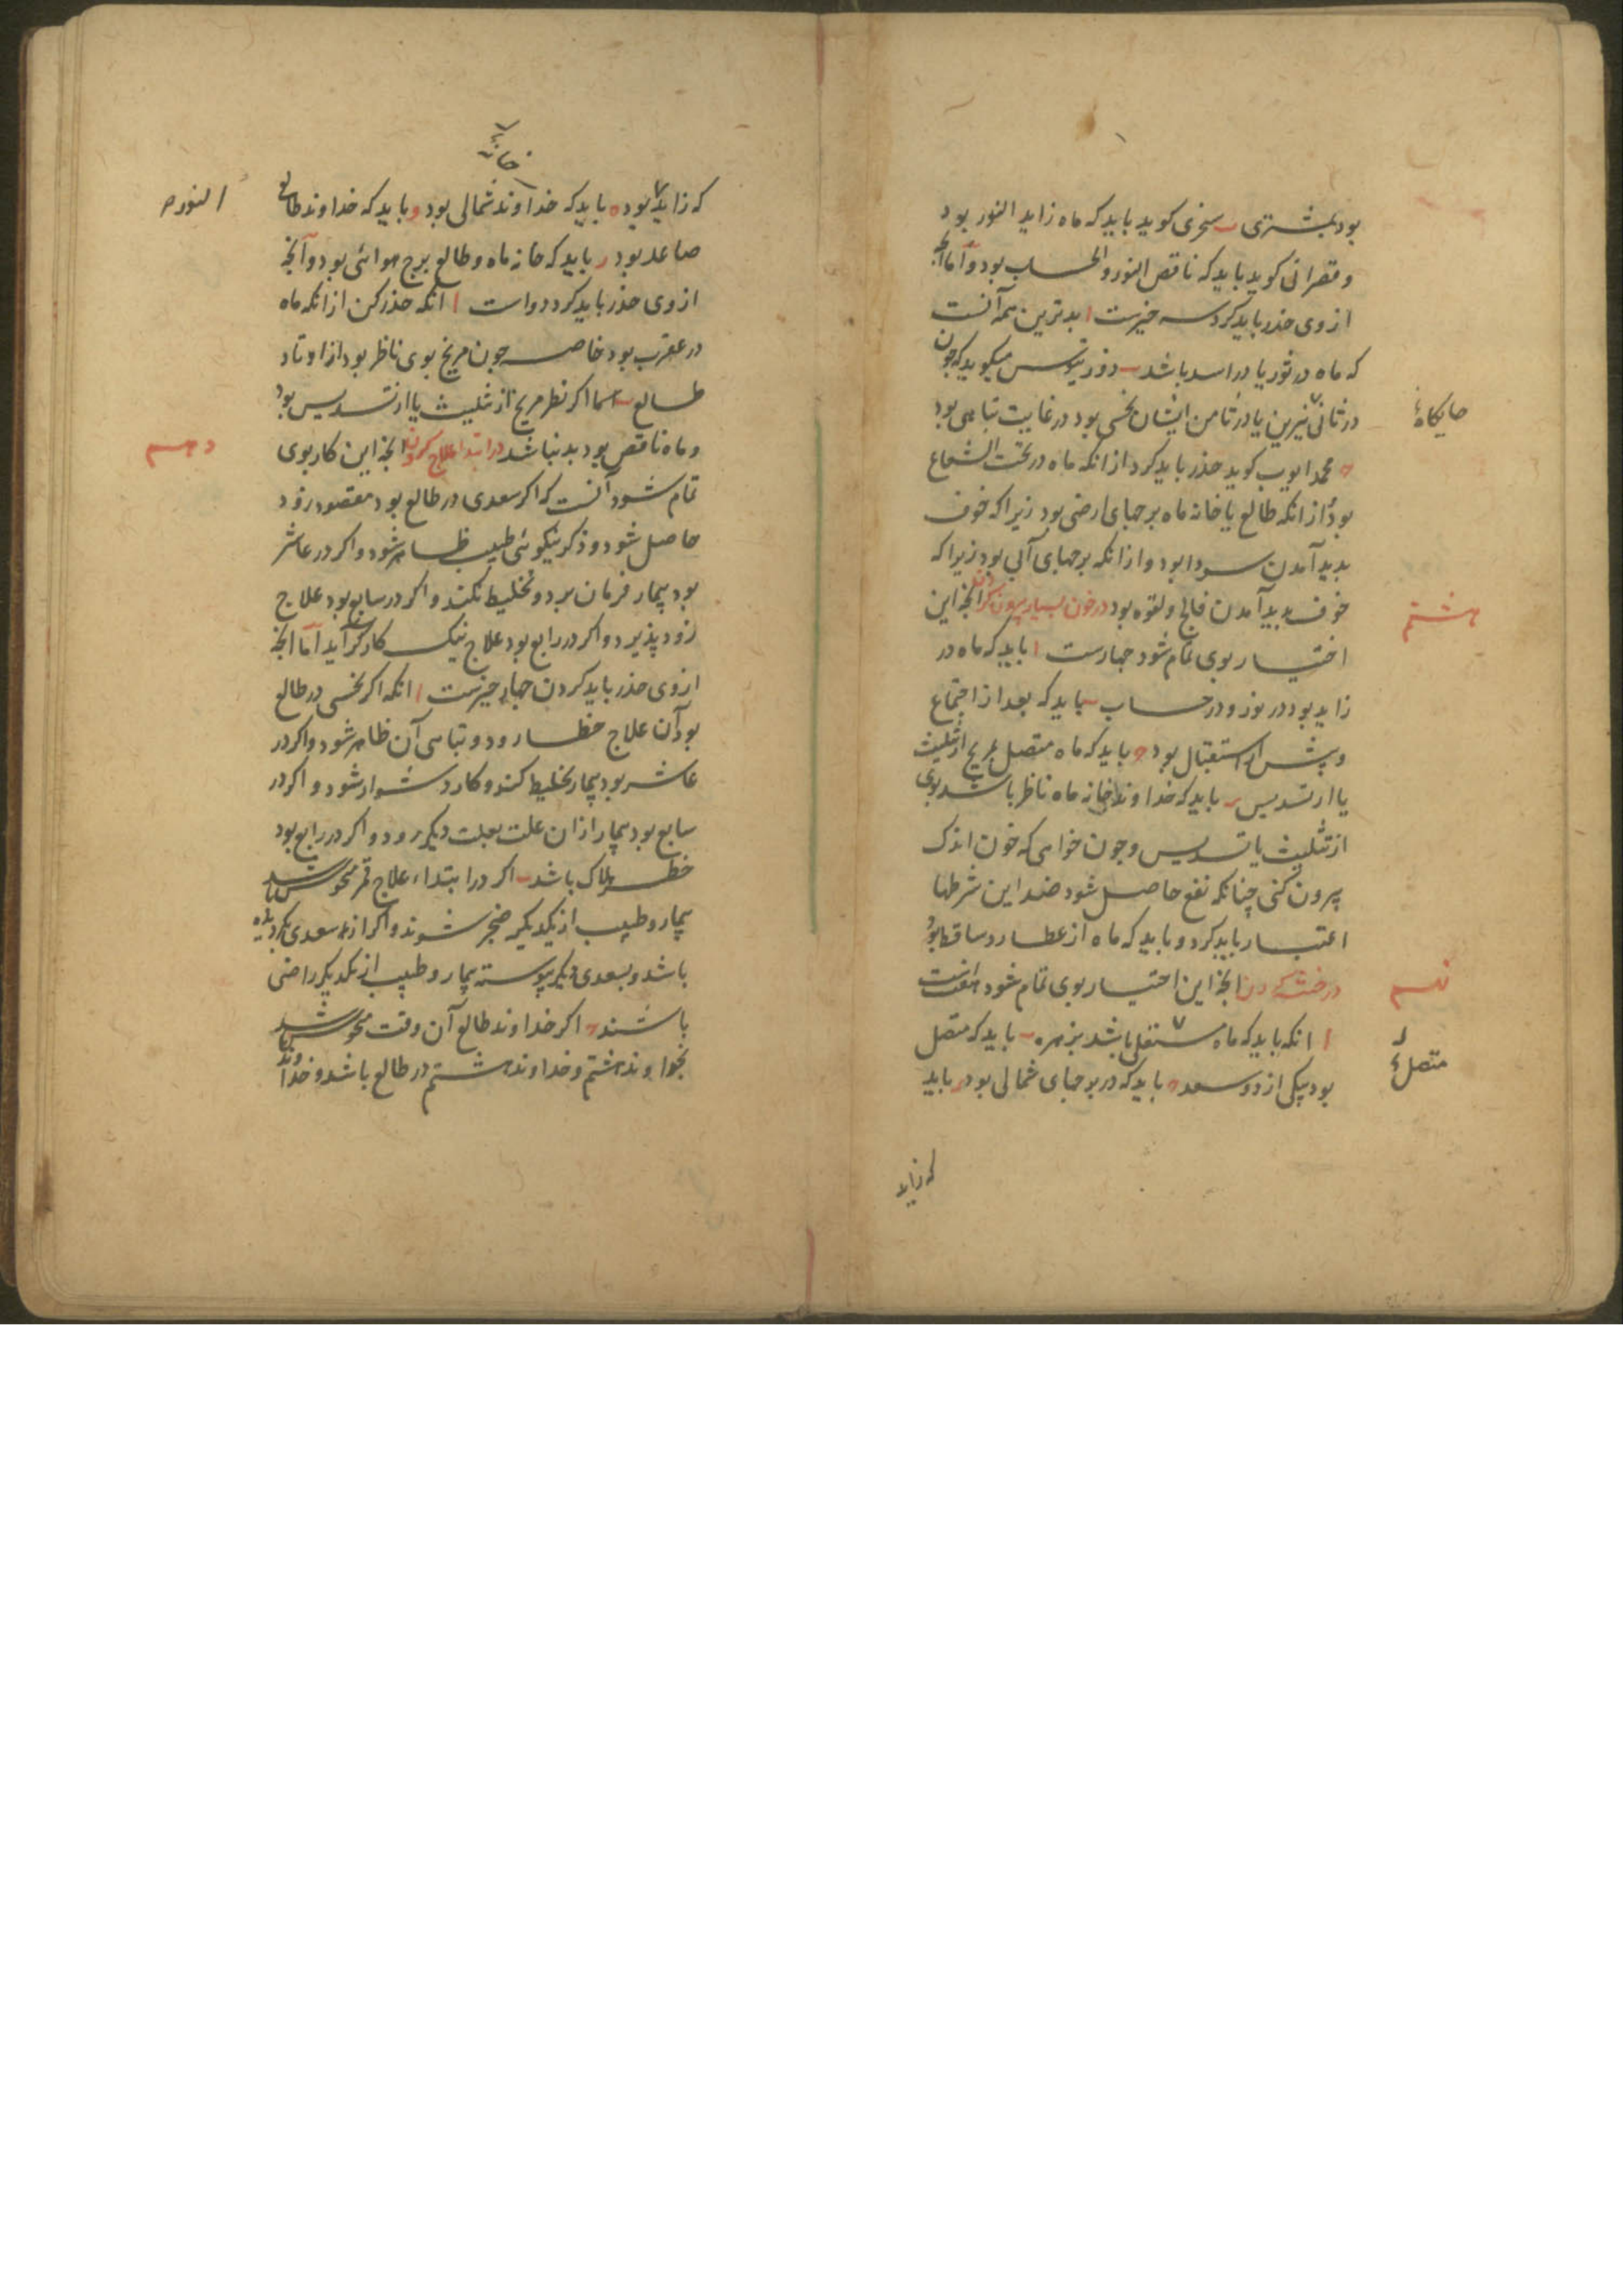 بود بمشتری ب سجزی کوید باید که ماه زاید النور بود
و قصرانی کوید باید که ناقص النور و الحساب بود و اما آنچه
از وی حذر باید کرد سه چیزست ا بدترین همه آنست
که ماه در ثور یا در اسد باشد ب میکوید که چون
در ثانی نیرین یا در ثامن ایشان نحسی بود در غایت تباهی بود
جایکاه
محمد ایوب کوید حذر باید کرد از انکه ماه در تحت الشعاع
بود و از انکه طالع یا خانه ماه برجهای ارضی بود زیرا که خوف
بدید آمدن سودا بود و از انکه برجهای آبی بود زیرا که
خوف بدید آمدن فالج و لقوه بود در خون بسیار بیرون کردن آنچه این
هشتم
اختیار بوی تمام شود چهارست ا باید که ماه در
زاید بود در نور و در حساب ب باید که بعد از اجتماع
و پیش از استقبال بود ج باید که ماه متصل بمریخ از تثلیث
یا از تسدیس د باید که خداوند خانه ماه ناظر باشد بوی
از تثلیث یا تسدیس و چون خواهی که خون اندک
بیرون کنی چنانکه نفع حاصل شود ضد این شرطها
اعتبار باید کرد و باید که ماه از عطارد ساقط بود
در ختنه کردن آنچه این اختیار بوی تمام شود هفت است
نهم
ا انکه باید که ماه مستعلی باشد بزهره ب باید که متصل
متصل
بود بیکی از دو سعد ج باید که در برجهای شمالی بود د باید
که زاید
خانه
که زاید بود ه باید که خداوند شمالی بود و باید که خداوند طالع
النور
صاعد بود ر باید که خانه ماه و طالع برج هوائی بود و آنچه
از وی حذر باید کرد دو است ا انکه حذر کن از انکه ماه
در عقرب بود خاصه چون مریخ بوی ناظر بود از اوتاد
طالع ب اما اکر نظر مریخ از تثلیث یا از تسدیس بود
و ماه ناقص بود بد نباشد در ابتدا علاج کردن آنچه این کار بوی
دهم
تمام شود آنست که اکر سعدی در طالع بود مقصود زود
حاصل شود و ذکر نیکوئی طبیب ظاهر شود و اکر در عاشر
بود بیمار فرمان برد و تخلیط نکند و اکر در سابع بود علاج
زود پذیرد و اکر در رابع بود علاج نیک کارکر آید اما آنچه
از وی حذر باید کردن چهار چیزست ا انکه اکر نحسی در طالع
بود آن علاج خطا رود و تباهی آن ظاهر شود و اکر در
عاشر بود بیمار تخلیط کند و کار دشوار شود و اکر در
سابع بود بیمار از ان علت بعلت دیکر رود و اکر در رابع بود
خطر هلاک باشد ب اکر در ابتداء علاج قمر منحوس باشد
بیمار و طبیب از یکدیکر ضجر شوند و اکر از سعدی بکردیده
باشد و بسعدی دیکر پیوسته بیمار و طبیب از یکدیکر راضی
باشند ج اکر خداوند طالع آن وقت منحوس باشد
بخداوند هشتم و خداوند هشتم در طالع باشد و خداوند